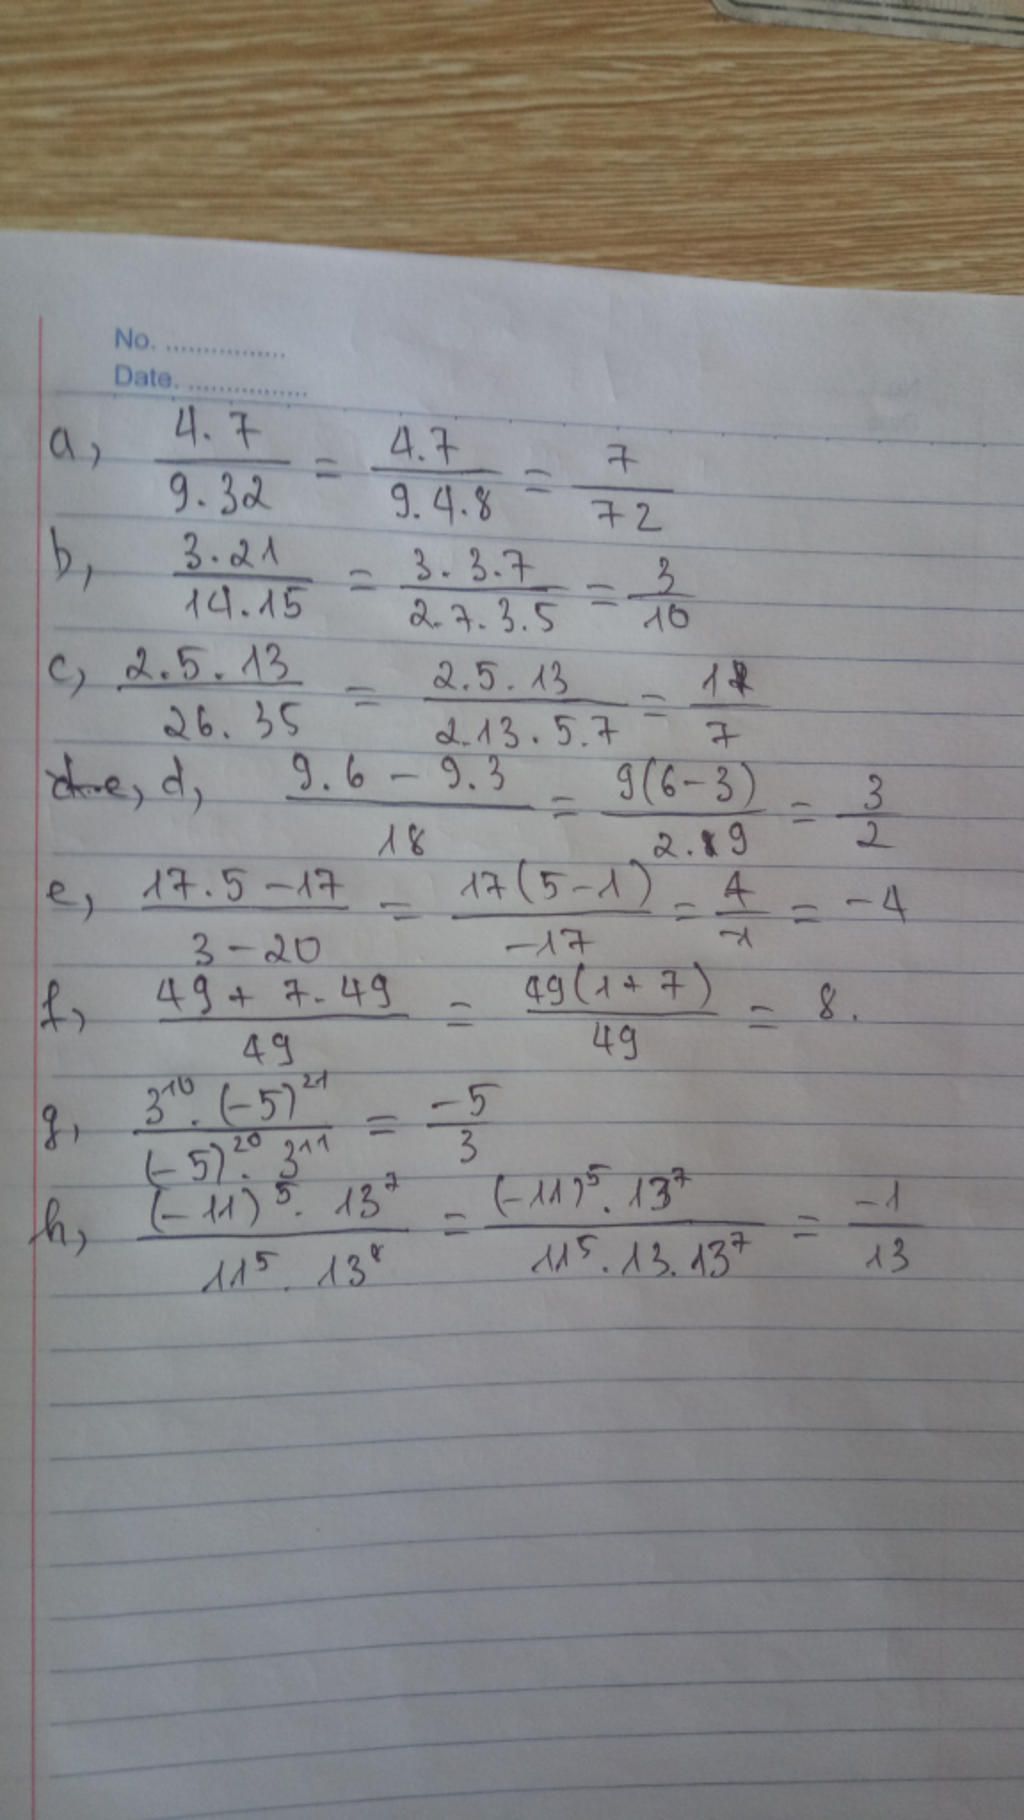 No. ...............
Date. ...............
a, 4.7/9.32 = 4.7/9.4.8 = 7/72
b, 3.21/14.15 = 3.3.7/2.7.3.5 = 3/10
c, 2.5.13/26.35 = 2.5.13/2.13.5.7 = 1/7
d, 9.6 - 9.3/18 = 9(6-3)/2.9 = 3/2
e, 17.5 - 17/3 - 20 = 17(5-1)/-17 = 4/-1 = -4
f, 49 + 7.49/49 = 49(1+7)/49 = 8.
g, 3¹⁰.(-5)²¹/(-5)²⁰.3¹¹ = -5/3
h, (-11)⁵.13⁷/11⁵.13⁸ = (-11)⁵.13⁷/11⁵.13.13⁷ = -1/13